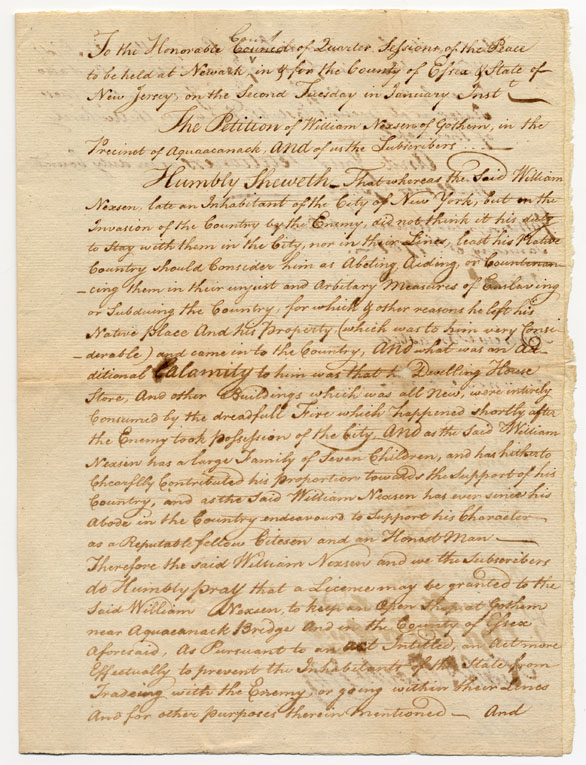 To the Honorable Council Court of Quarter Sessions of the Peace
to be held at Newark, in & for the County of Essex & State of
New Jersey, on the Second Tuesday in January Inst.t
The Petition of William Nexsen of Gothem, in the
Precinct of Aquaacanack, And of us the Subscribers
Humbly Sheweth – That whereas the Said William
Nexsen, late an Inhabitant of the City of New York, but on the
Invasion of the Country by the Enemy, did not think it his duty
to Stay with them in the City, nor in their Lines, least his Native
Country Should Consider him as Abeting, Aiding, or Countenan-
-cing them in their unjust and Arbitary Measures of Enslaving
or Subduing the Country, for which & other reasons he left his
Native Place And his Property (which was to him very Consi-
-derable) and came in to the Country, And what was an Ad-
ditional Calamity to him was that Dwelling House
Store, And other Buildings which was all New, were intirely
Consumed by the dreadfull Fire which happened shortly after
the Enemy took possession of the City. And as the Said William
Nexsen has a large Family of Seven Children, and has hitherto
Chearflly Contributed his Proportion towards the Support of his
Country, and as the Said William Nexsen has ever since his
Abode in the Country endeavourd to Support his Character
as a Reputable fellow Citesen and an Honast Man –
Therefore the said William Nexsen and we the Subscribers
do Humbly prall that a Licence may be granted to the
Said William Nexsen, to keep an Open Shop at Gothem
near Aquacanack Bridge And in the County of Essex
Aforesaid, As Pursuant to an Act Intitled, an Act more
Effectually to prevent the Inhabitants of the State from
Tradeing with the Enemy, or going within their Lines
And for other Purposes therein mentioned – And